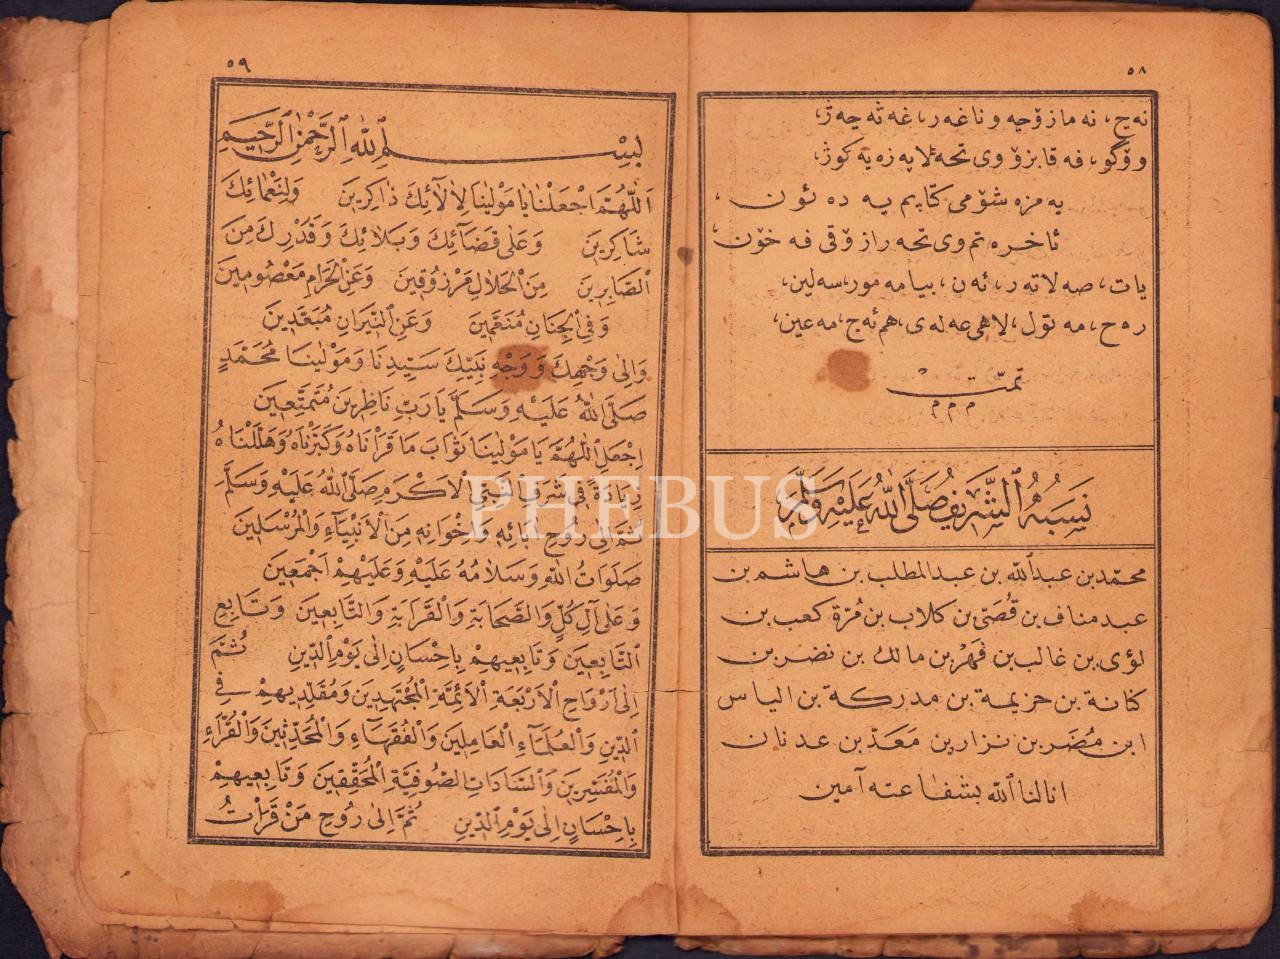 ٥٨
نه‌ج، نه‌مازۆچه‌ وناغه‌ر، غه‌ثه‌چه‌ژ،
ووٓگو، فه‌قابزۆوی تحه‌ئلاپه‌زه‌یه‌کوژ،
یه‌مزه‌شۆمی کتابم یه‌ ده‌ ئون،
ئاخره‌تم وی تحه‌رازۆقی فه‌خۆن،
یات، صه‌لاته‌ر، ئه‌ن، بیامه‌مور، سه‌لین،
ره‌ح، مه‌تۆل، لاهی عه‌له‌ی، هم ئه‌ج، مه‌عین،
تمّت
م م م
نَسَبُهُ ٱلشَّرِيفُ صَلَّى ٱللّٰهُ عَلَيْهِ وَسَلَّمَ
محمّد بن عبد ٱللّه بن عبد المطلب بن هاشم بن
عبد مناف بن قُصَیّ بن كلاب بن مُرّة كعب بن
لؤى بن غالب بن فَهْر بن مالك بن نضر بن
كنانة بن خزيمة بن مدركة بن الياس
ابن مُضَر بن نزار بن مَعَدّ بن عدنان
انالنا ٱللّه بشفاعته آمين
٥٩
بِسْمِ ٱللّٰهِ ٱلرَّحْمٰنِ ٱلرَّحِيمِ
اَللّٰهُمَّ اجْعَلْنَا يَا مَوْلٰينَا لِاٰلَآئِكَ ذَاكِرِينَ وَلِنَعْمَائِكَ
شَاكِرِينَ وَعَلٰى قَضَآئِكَ وَبَلَائِكَ وَقَدْرِكَ مِنَ
ٱلصَّابِرِينَ مِنَ ٱلْحَلَالِ مَرْزُوقِينَ وَعَنِ ٱلْحَرَامِ مَعْصُومِينَ
وَفِى ٱلْجِنَانِ مُنَعَّمِينَ وَعَنِ ٱلنِّيرَانِ مُبَعَّدِينَ
وَاِلٰى وَجْهِكَ وَوَجْهِ نَبِيِّكَ سَيِّدِنَا وَمَوْلٰينَا مُحَمَّدٍ
صَلَّى ٱللّٰهُ عَلَيْهِ وَسَلَّمَ يَارَبِّ نَاظِرِينَ مُتَمَتِّعِينَ
اِجْعَلِ ٱللّٰهُمَّ يَا مَوْلٰينَا ثَوَابَ مَا قَرَأْنَاهُ وَكَبَّرْنَاهُ وَهَلَّلْنَاهُ
زِيَادَةً فِى شَرَفِ ٱلنَّبِىِّ ٱلْاَكْرَمِ صَلَّى ٱللّٰهُ عَلَيْهِ وَسَلَّمَ
ثُمَّ اِلٰى رُوحِ اٰبَائِهِ وَاِخْوَانِهِ مِنَ ٱلْاَنْبِيَآءِ وَٱلْمُرْسَلِينَ
صَلَوَاتُ ٱللّٰهِ وَسَلَامُهُ عَلَيْهِ وَعَلَيْهِمْ اَجْمَعِينَ
وَعَلٰى آلِ كُلٍّ وَٱلصَّحَابَةِ وَٱلْقَرَابَةِ وَٱلتَّابِعِينَ وَتَابِعِ
ٱلتَّابِعِينَ وَتَابِعِيهِمْ بِاِحْسَانٍ اِلٰى يَوْمِ ٱلدِّينِ ثُمَّ
اِلٰى اَرْوَاحِ ٱلْاَرْبَعَةِ ٱلْاَئِمَّةِ ٱلْمُجْتَهِدِينَ وَمُقَلِّدِيهِمْ فِى
ٱلدِّينِ وَٱلْعُلَمَآءِ ٱلْعَامِلِينَ وَٱلْفُقَهَآءِ وَٱلْمُحَدِّثِينَ وَٱلْقُرَّآءِ
وَٱلْمُفَسِّرِينَ وَٱلسَّادَاتِ ٱلصُّوفِيَّةِ ٱلْمُحَقِّقِينَ وَتَابِعِيهِمْ
بِاِحْسَانٍ اِلٰى يَوْمِ ٱلدِّينِ ثُمَّ اِلٰى رُوحِ مَنْ قَرَأْتُ
PHEBUS